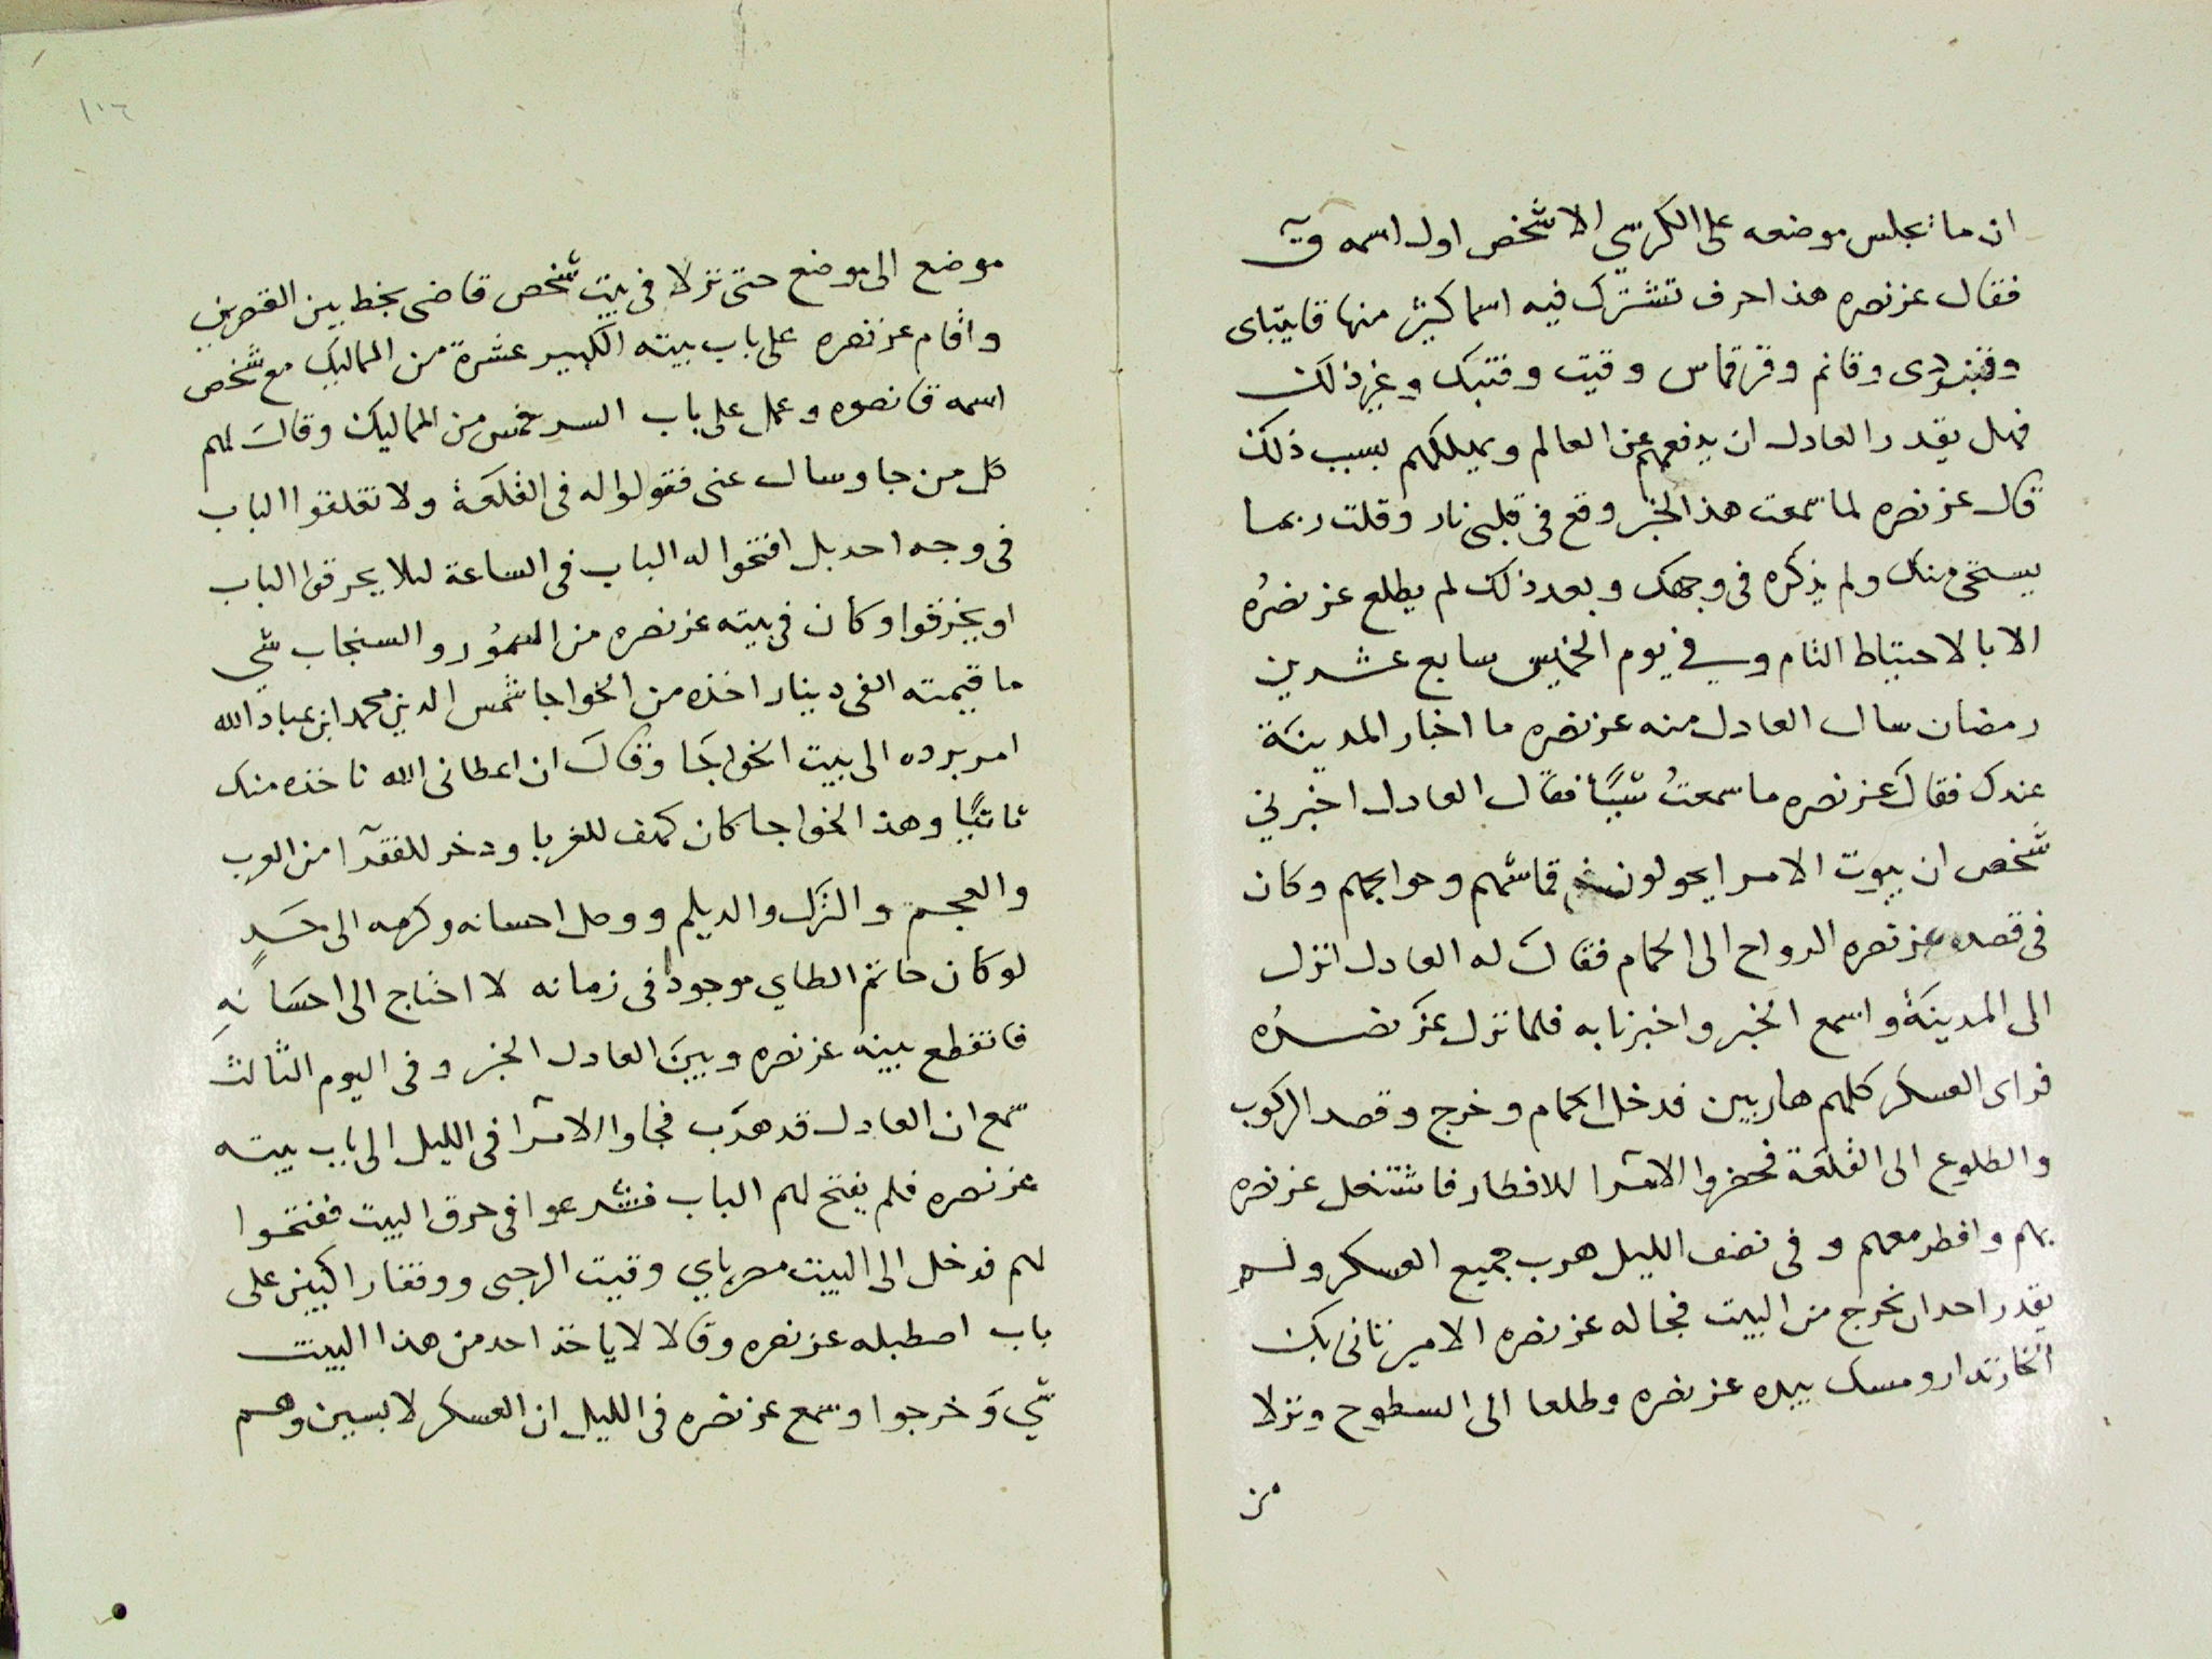 ان ما يجلس موضعه على الكرسي الا شخص اول اسمه ق
فقال عز نصره هذا حرف تشترك فيه اسما كثيرة منها قايتباى
وقنبردى وقانم وقرقماس وقيت وقنبك وغير ذلك
فهل يقدر العادل ان يدفعهم عن العالم ويهلكهم بسبب ذلك
قال عز نصره لما سمعت هذا الخبر وقع فى قلبى نار وقلت ربما
يستحى منك ولم يذكره فى وجهك وبعد ذلك لم يطلع عز نصرُه
الا بالاحتياط التام وفي يوم الخميس سابع عشرين
رمضان سال العادل منه عز نصره ما اخبار المدينة
عندك فقال عز نصره ما سمعتُ شيًا فقال العادل اخبرني
شخص ان بيوت الامرا يحولون قماشهم وحوايجهم وكان
فى قصده عز نصره الرواح الى الحمام فقال له العادل انزل
الى المدينة واسمع الخبر واخبرنا به فلما نزل عز نصره
فراى العسكر كلهم هاربين فدخل الحمام وخرج وقصد الركوب
والطلوع الى القلعة فحضروا الامرا للافطار فاشتغل عز نصره
بهم وافطر معهم وفى نصف الليل هرب جميع العسكر ولم
يقدر احد ان يخرج من البيت فجا له عز نصره الامير تانى بك
الخازندار ومسك بيده عز نصره وطلعا الى السطوح ونزلا
من
١٠٦
موضع الى موضع حتى نزلا فى بيت شخص قاضى بخط بين القصرين
واقام عز نصره على باب بيته الكبير عشرة من المماليك مع شخص
اسمه قانصوه وعمل على باب السر خمس من المماليك وقال لهم
كل من جا وسال عنى فقولوا له فى القلعة ولا تقلقوا الباب
فى وجه احد بل افتحوا له الباب فى الساعة ليلا يحرقوا الباب
او يخرقوا وكان فى بيته عز نصره من السمُور والسنجاب شي
ما قيمته الفى دينار اخذه من الخواجا شمس الدين محمد ابن عباد الله
امر برده الى بيت الخواجَا وقال ان اعطانى الله ناخذه منك
ثانيًا وهذا الخواجا كان كهف للغربا ودخر للفقرآ من العرب
والعجم والترك والديلم ووصل احسانه وكرمه الى حَدٍ
لو كان حاتم الطاي موجودا فى زمانه لا احتاج الى احسَانه
فانقطع بينه عز نصره وبين العادل الخبر وفى اليوم الثالث
سمع ان العادل قد هرَب فجاوا الامرا فى الليل الى باب بيته
عز نصره فلم يفتح لهم الباب فشرعوا فى حرق البيت ففتحوا
لهم فدخل الى البيت مصرباي وقيت الرجبى ووقفا را كبين على
باب اصطبله عز نصره وقالا لا ياخذ احد من هذا البيت
شي وَخرجوا وسمع عز نصره فى الليل ان العسكر لابسين وهم